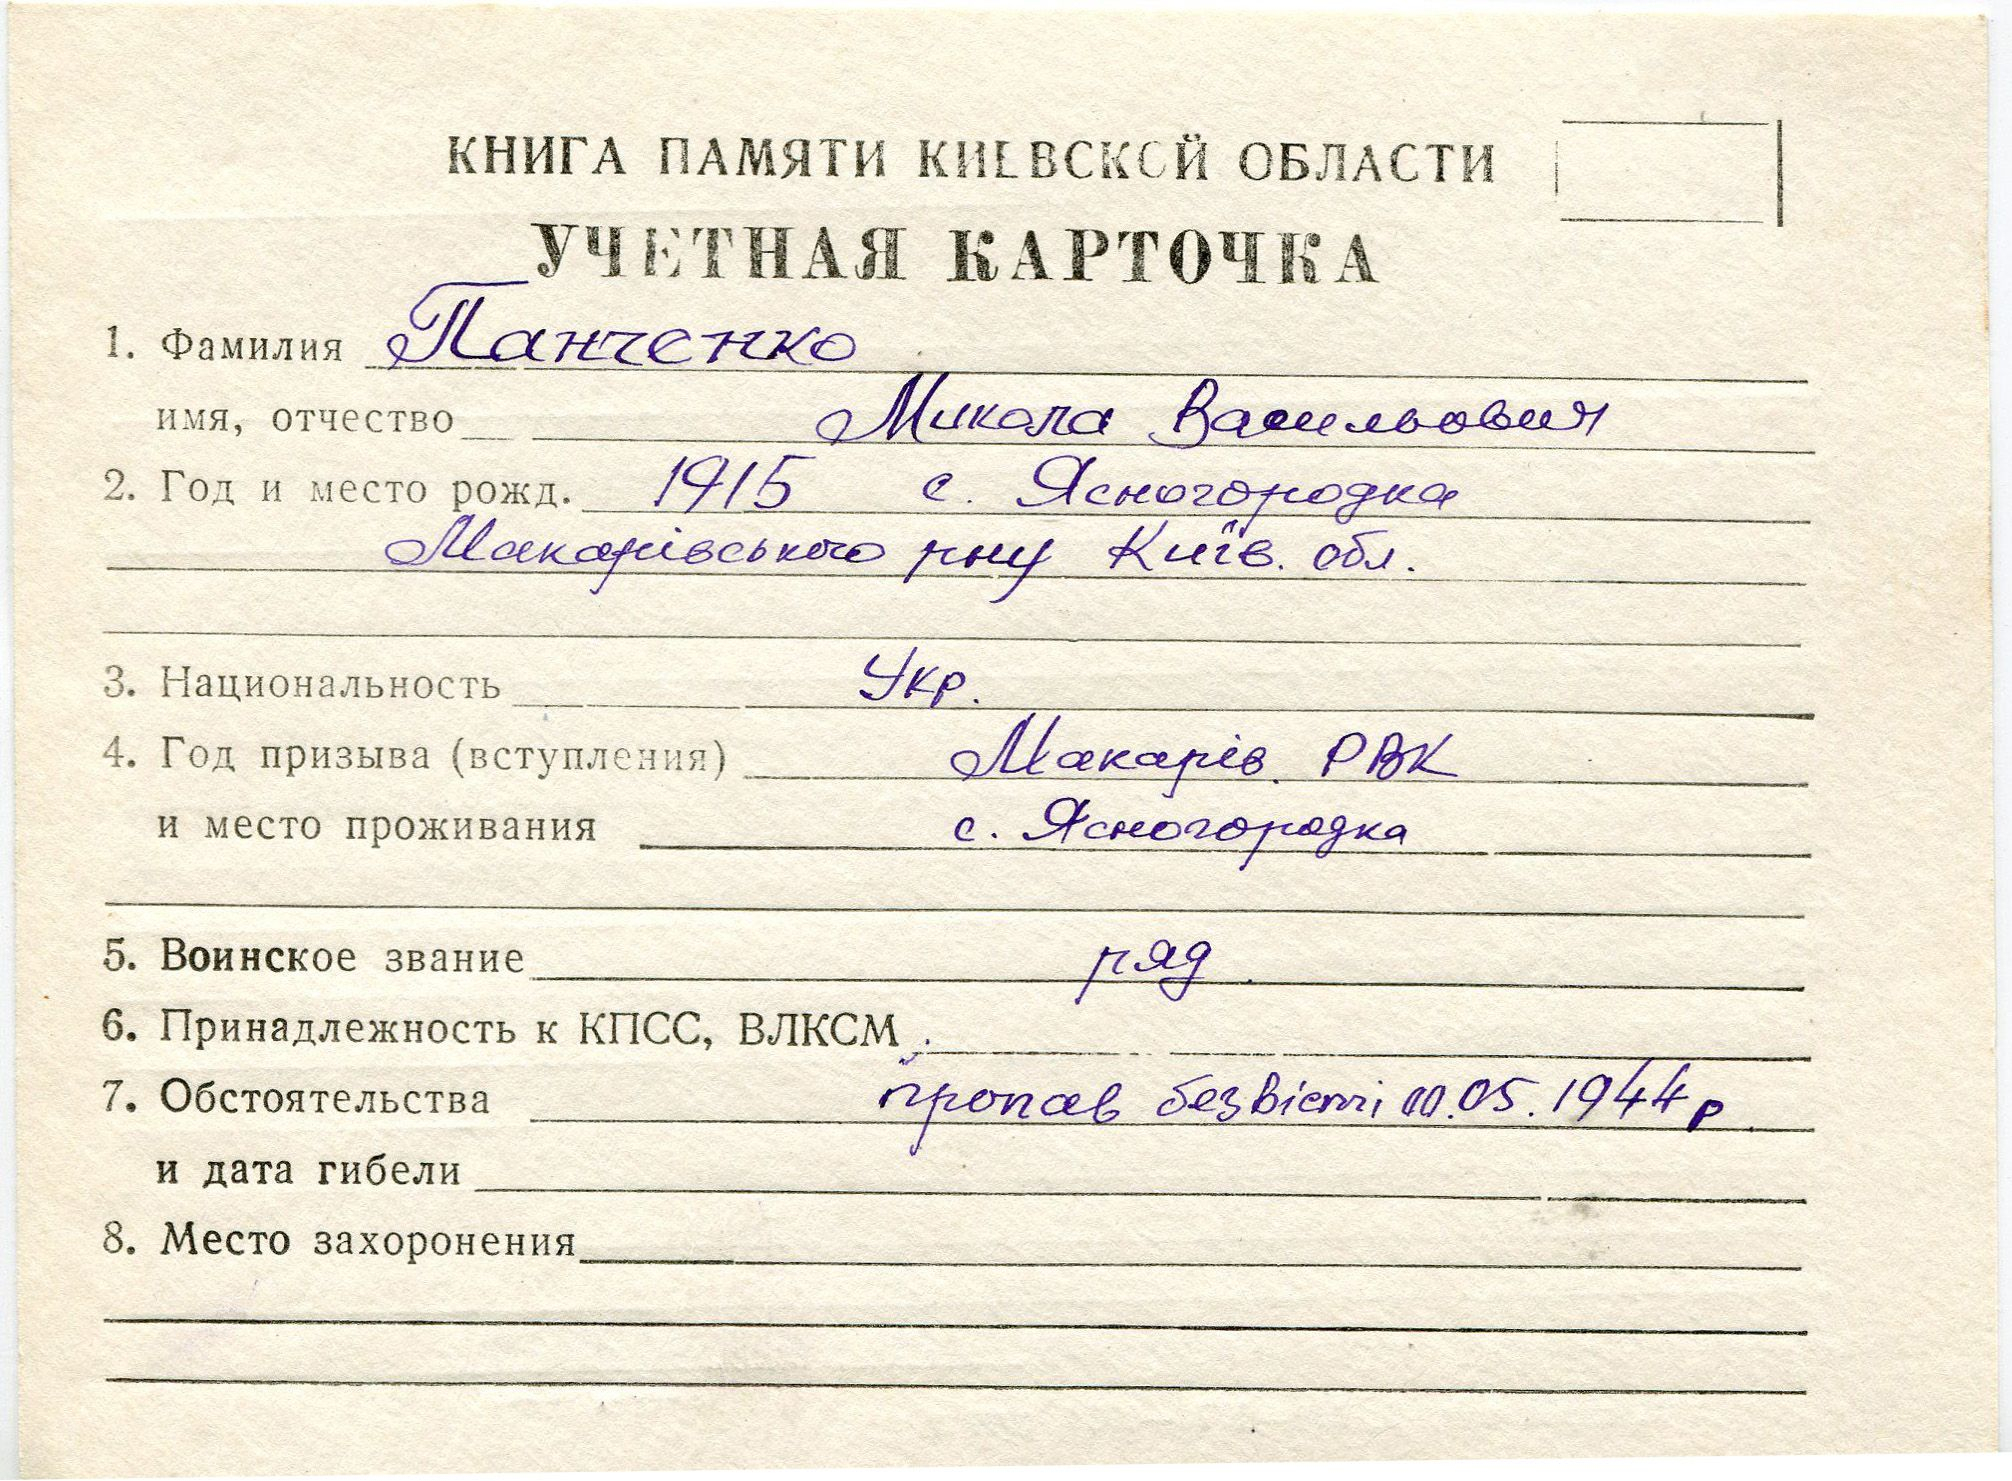 КНИГА ПАМЯТИ КИЕВСКОЙ ОБЛАСТИ
УЧЕТНАЯ КАРТОЧКА
1. Фамилия Панченко
имя, отчество Микола Васильович
2. Год и место рожд. 1915 с. Ясногородка
Макарівського р-ну Київ. обл.
3. Национальность Укр.
4. Год призыва (вступления) Макарів. РВК
и место проживания с. Ясногородка
5. Воинское звание ряд.
6. Принадлежность к КПСС, ВЛКСМ
7. Обстоятельства пропав безвісті .05.1944 р.
и дата гибели
8. Место захоронения